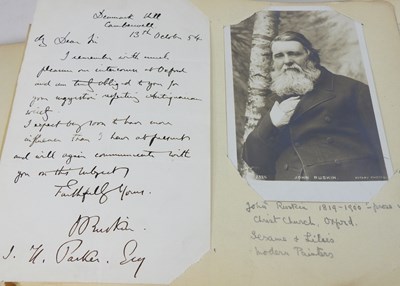 Denmark Hill
Camberwell
13th October 54
My Dear Sir
I remember with much
pleasure our intercourse at Oxford
and am truly obliged to you for
your suggestion respecting
I expect very soon to have more
influence than I have at present
and will again communicate with
you on the subject
Faithfully Yours.
J Ruskin
J. H. Parker. Esq
JOHN RUSKIN
John Ruskin 1819-1900
Christ Church. Oxford.
Sesame & Lilies
Modern Painters